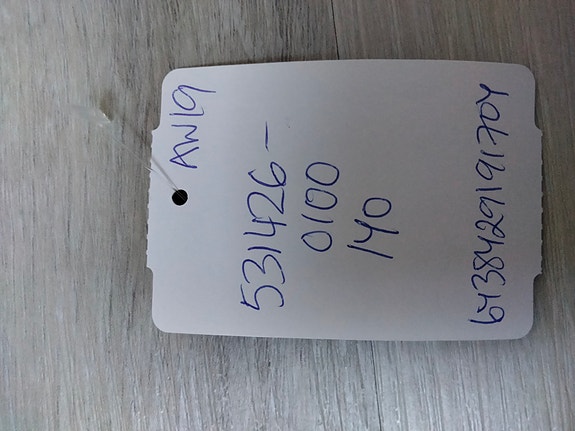 AW19
531426-
0100
140
6438429191704